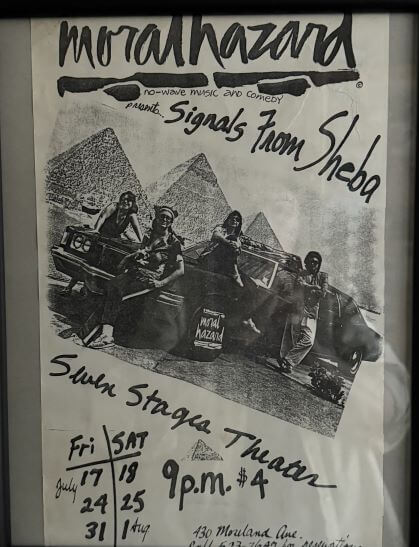 moral hazard
©
no-wave music and comedy
presents... Signals From Sheba
moral
hazard
Seven Stages Theater
Fri SAT
July 17 18
24 25
31 1 Aug
9p.m. $4
430 Moreland Ave.